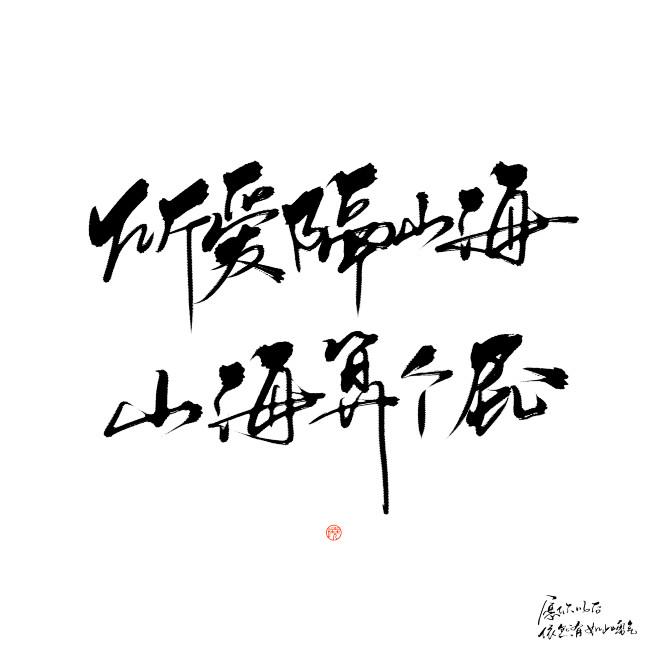 所爱隔山海
山海算个屁
愿你以后
依然有如此嘴气